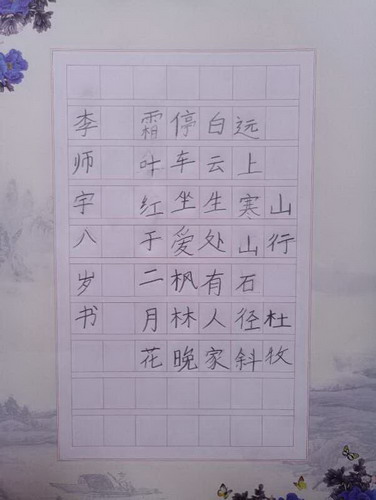 山行 杜牧
远上寒山石径斜
白云生处有人家
停车坐爱枫林晚
霜叶红于二月花
李师宇八岁书